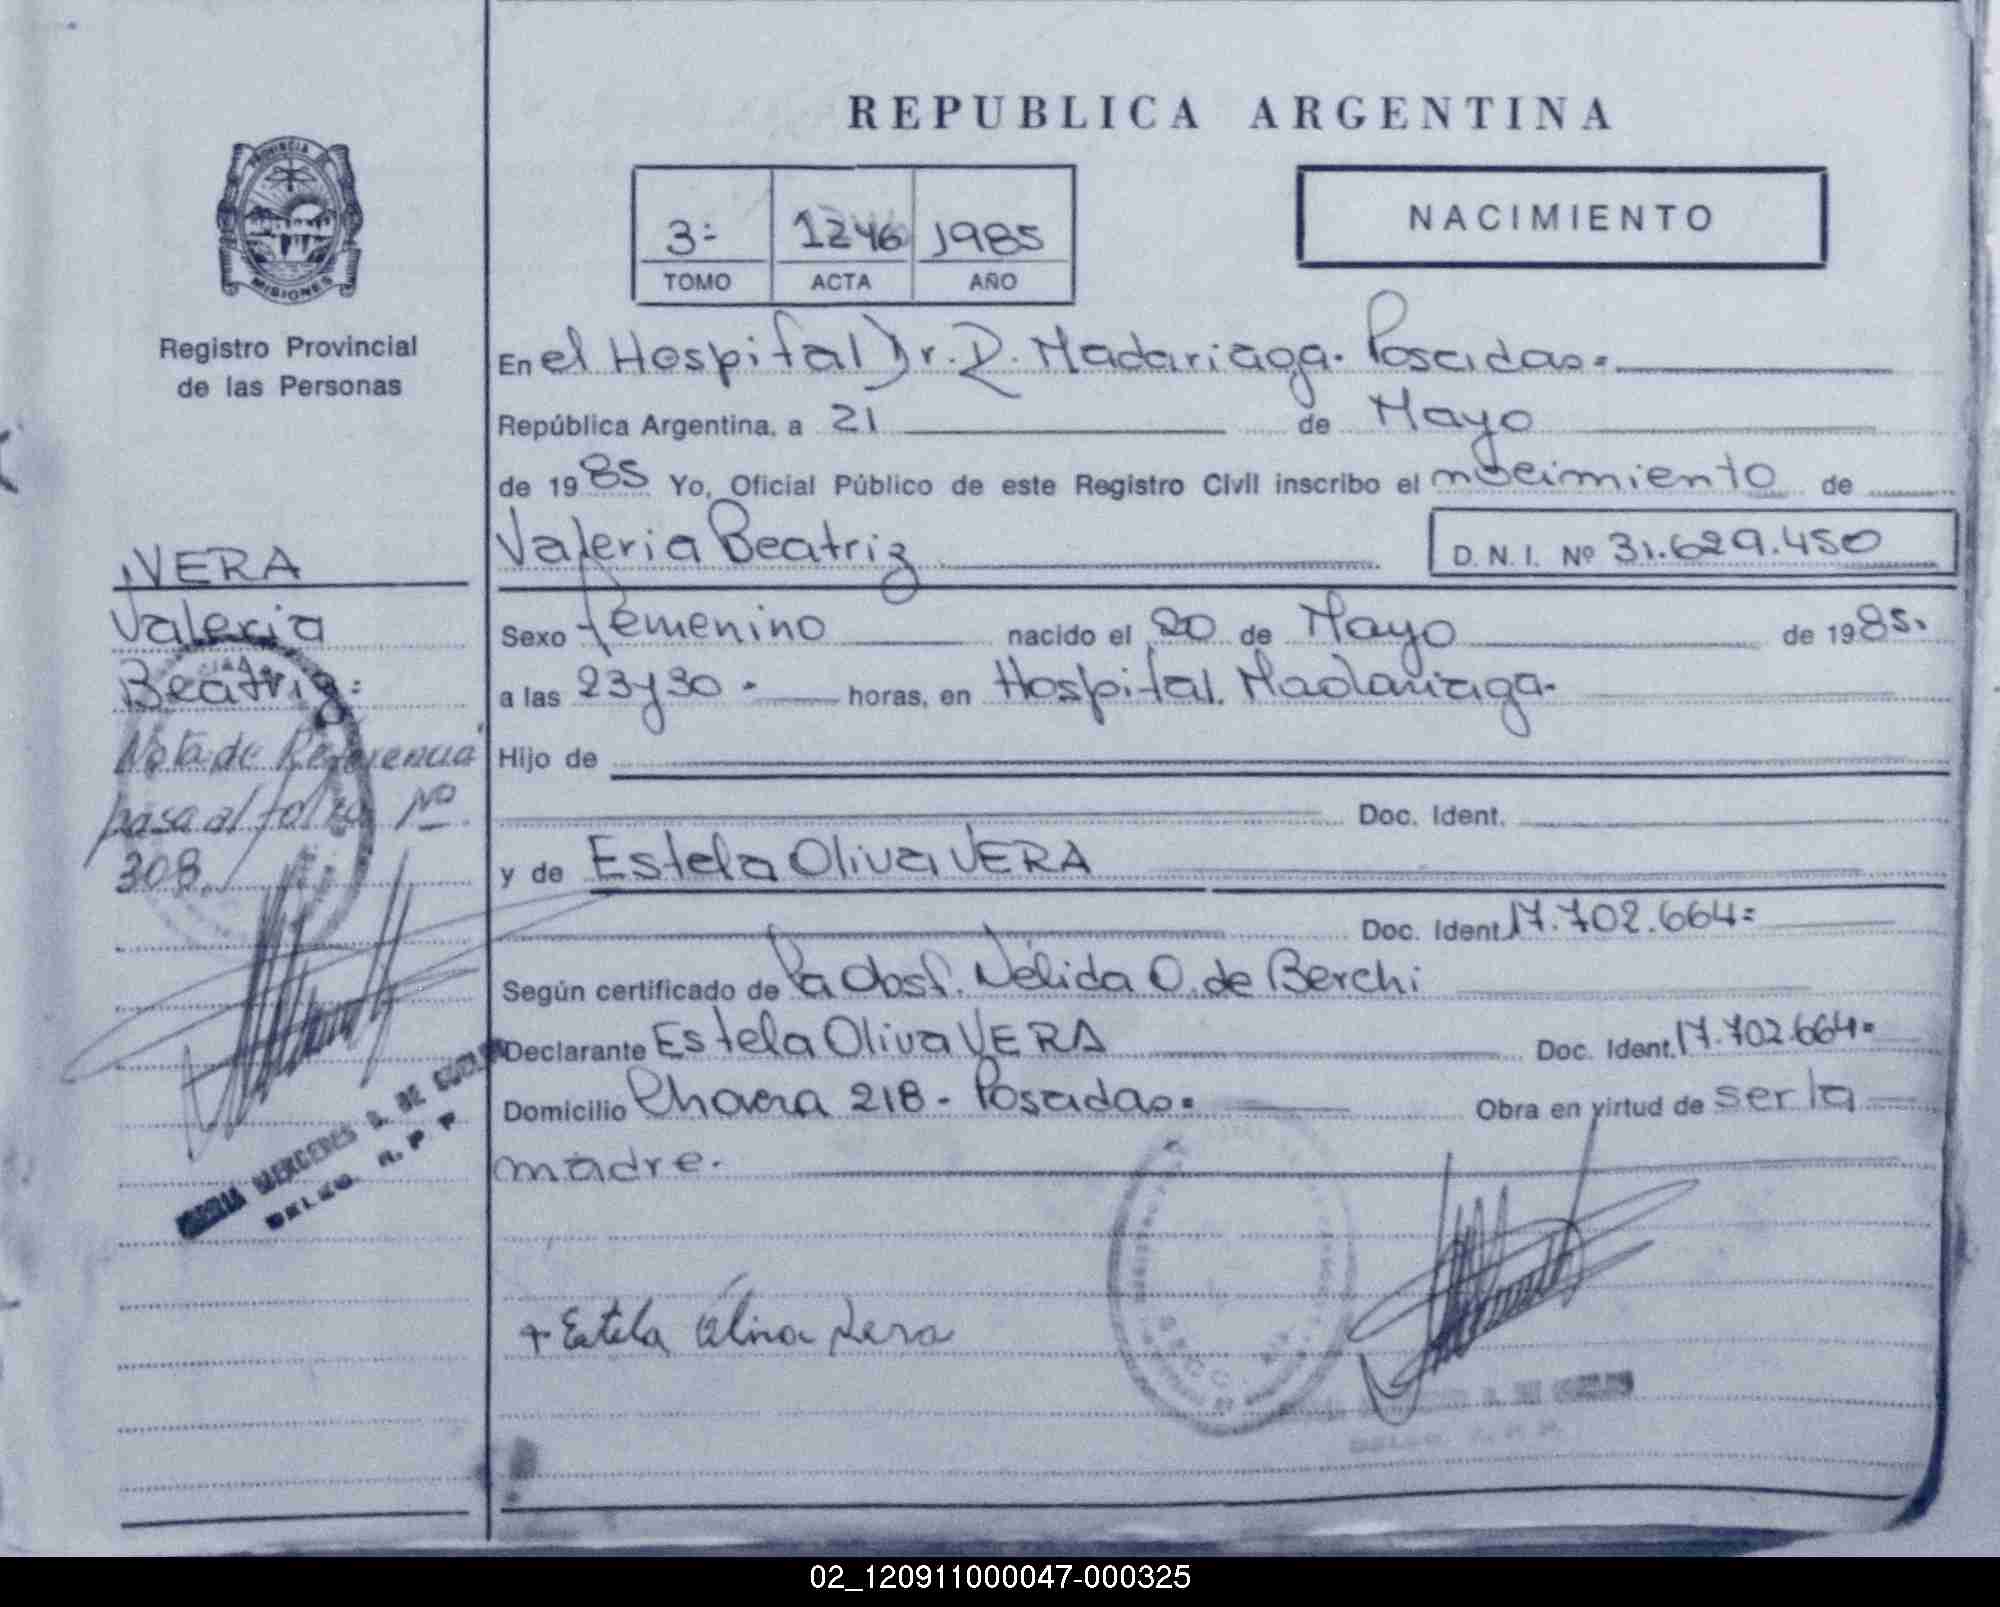 REPUBLICA ARGENTINA
PROVINCIA DE
MISIONES
Registro Provincial
de las Personas
3=
1246
1985
TOMO
ACTA
AÑO
NACIMIENTO
En el Hospital Dr. R. Madariaga. Posadas=
República Argentina, a 21 de Mayo
de 1985 Yo, Oficial Público de este Registro Civil inscribo el nacimiento de
Valeria Beatriz
D. N. I. Nº 31.629.450
Sexo femenino nacido el 20 de Mayo de 1985.
a las 23y30 - horas, en Hospital. Madariaga.
Hijo de
Doc. Ident.
y de Estela Oliva VERA
Doc. Ident. 17.702.664=
Según certificado de la Obst. Nélida O. de Berchi
Declarante Estela Oliva VERA Doc. Ident. 17.702.664=
Domicilio 218 - Posadas= Obra en virtud de ser la
madre.
VERA
Valeria
Beatriz=
Nota de Referencia
pasa al folio Nº
308.
MERCEDES DE
R. P. P.
+ Estela Oliva Vera
02_120911000047-000325